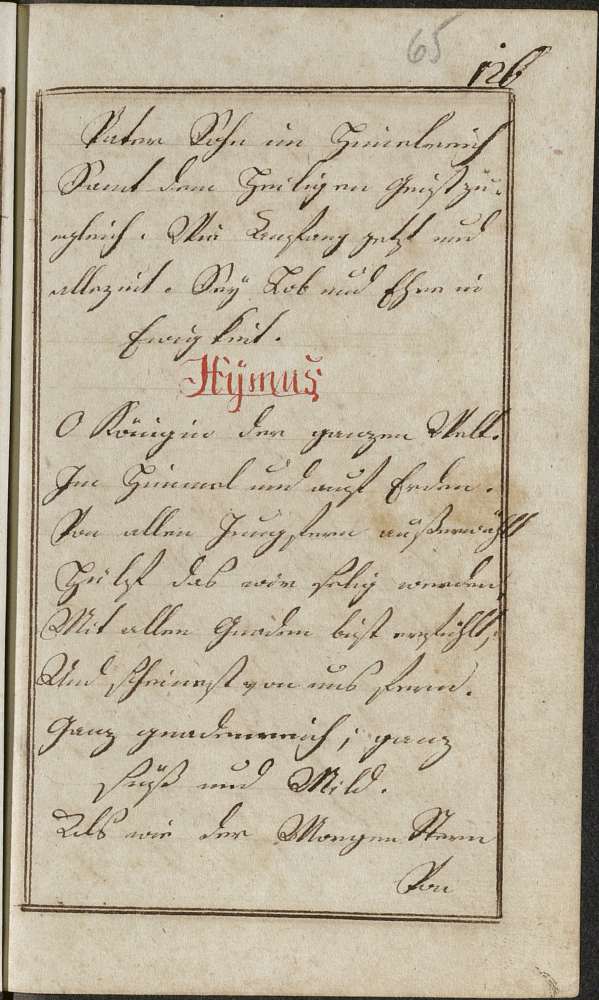 65
126
Vater Sohn im Himelreich
Samt dem Heiligen Geist zu-
gleich. Wie Anfang jetzt und
allezeit. Seÿ Lob und Ehre in
Ewigkeit.
Hÿmuß
O Königin der ganzen Welt.
Im Himmel und auf Erden.
Von allen Jungfern außerwählt
Hülf das wir selig werden,
Mit allen Gnaden bist erfühlt,
Und scheinest von uns fern.
Ganz gnadenreich, ganz
süß und Mild.
Als wie der Morgen Stern
Von